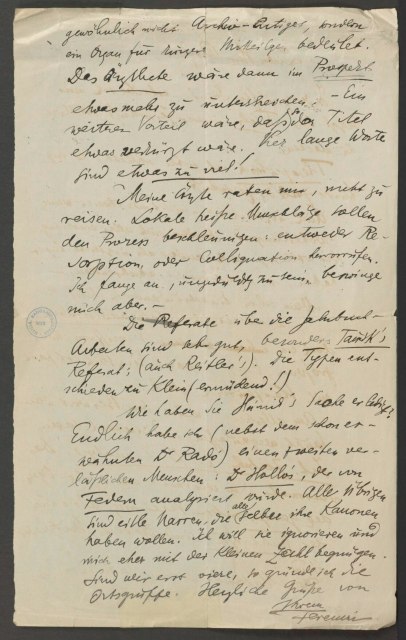 gewöhnlich nicht Archiv-artiges, sondern
ein Organ für kürzere Mitteilgen bedeutet.
Das Ärztliche wäre dann im Prospekt
etwas mehr zu unterstreichen. - Ein
weiterer Vorteil wäre, daß der Titel
etwas verkürzt wäre. Vier lange Worte
sind etwas zu viel!
Meine Ärzte raten mir, nicht zu
reisen. Lokale heiße Umschläge sollen
den Prozess beschleunigen: entweder Re-
sorption, oder Colliquation hervorrufen.
Ich fange an, ungeduldig zu sein, bezwinge
mich aber. -
Die Referate über die Jahrbuch-
Arbeiten sind sehr gut, besonders Tausk's
Referat; (auch Reitler's). Die Typen ent-
schieden zu klein (ermüdend!!)
Wie haben Sie Sache erledigt?
Endlich habe ich (nebst dem schon er-
wähnten Dr Radó) einen zweiten ver-
läßlichen Menschen: Dr Hollós, der von
Federn analysiert wurde. Alle Übrigen
sind eitle Narren, die alle selber ihre Kanonen
haben wollen. Ich will sie ignorieren und
mich eher mit der kleinen Zahl begnügen.
Sind wir erst viere, so gründe ich die
Ortsgruppe. Herzliche Grüße von
Ihrem
Ferenczi